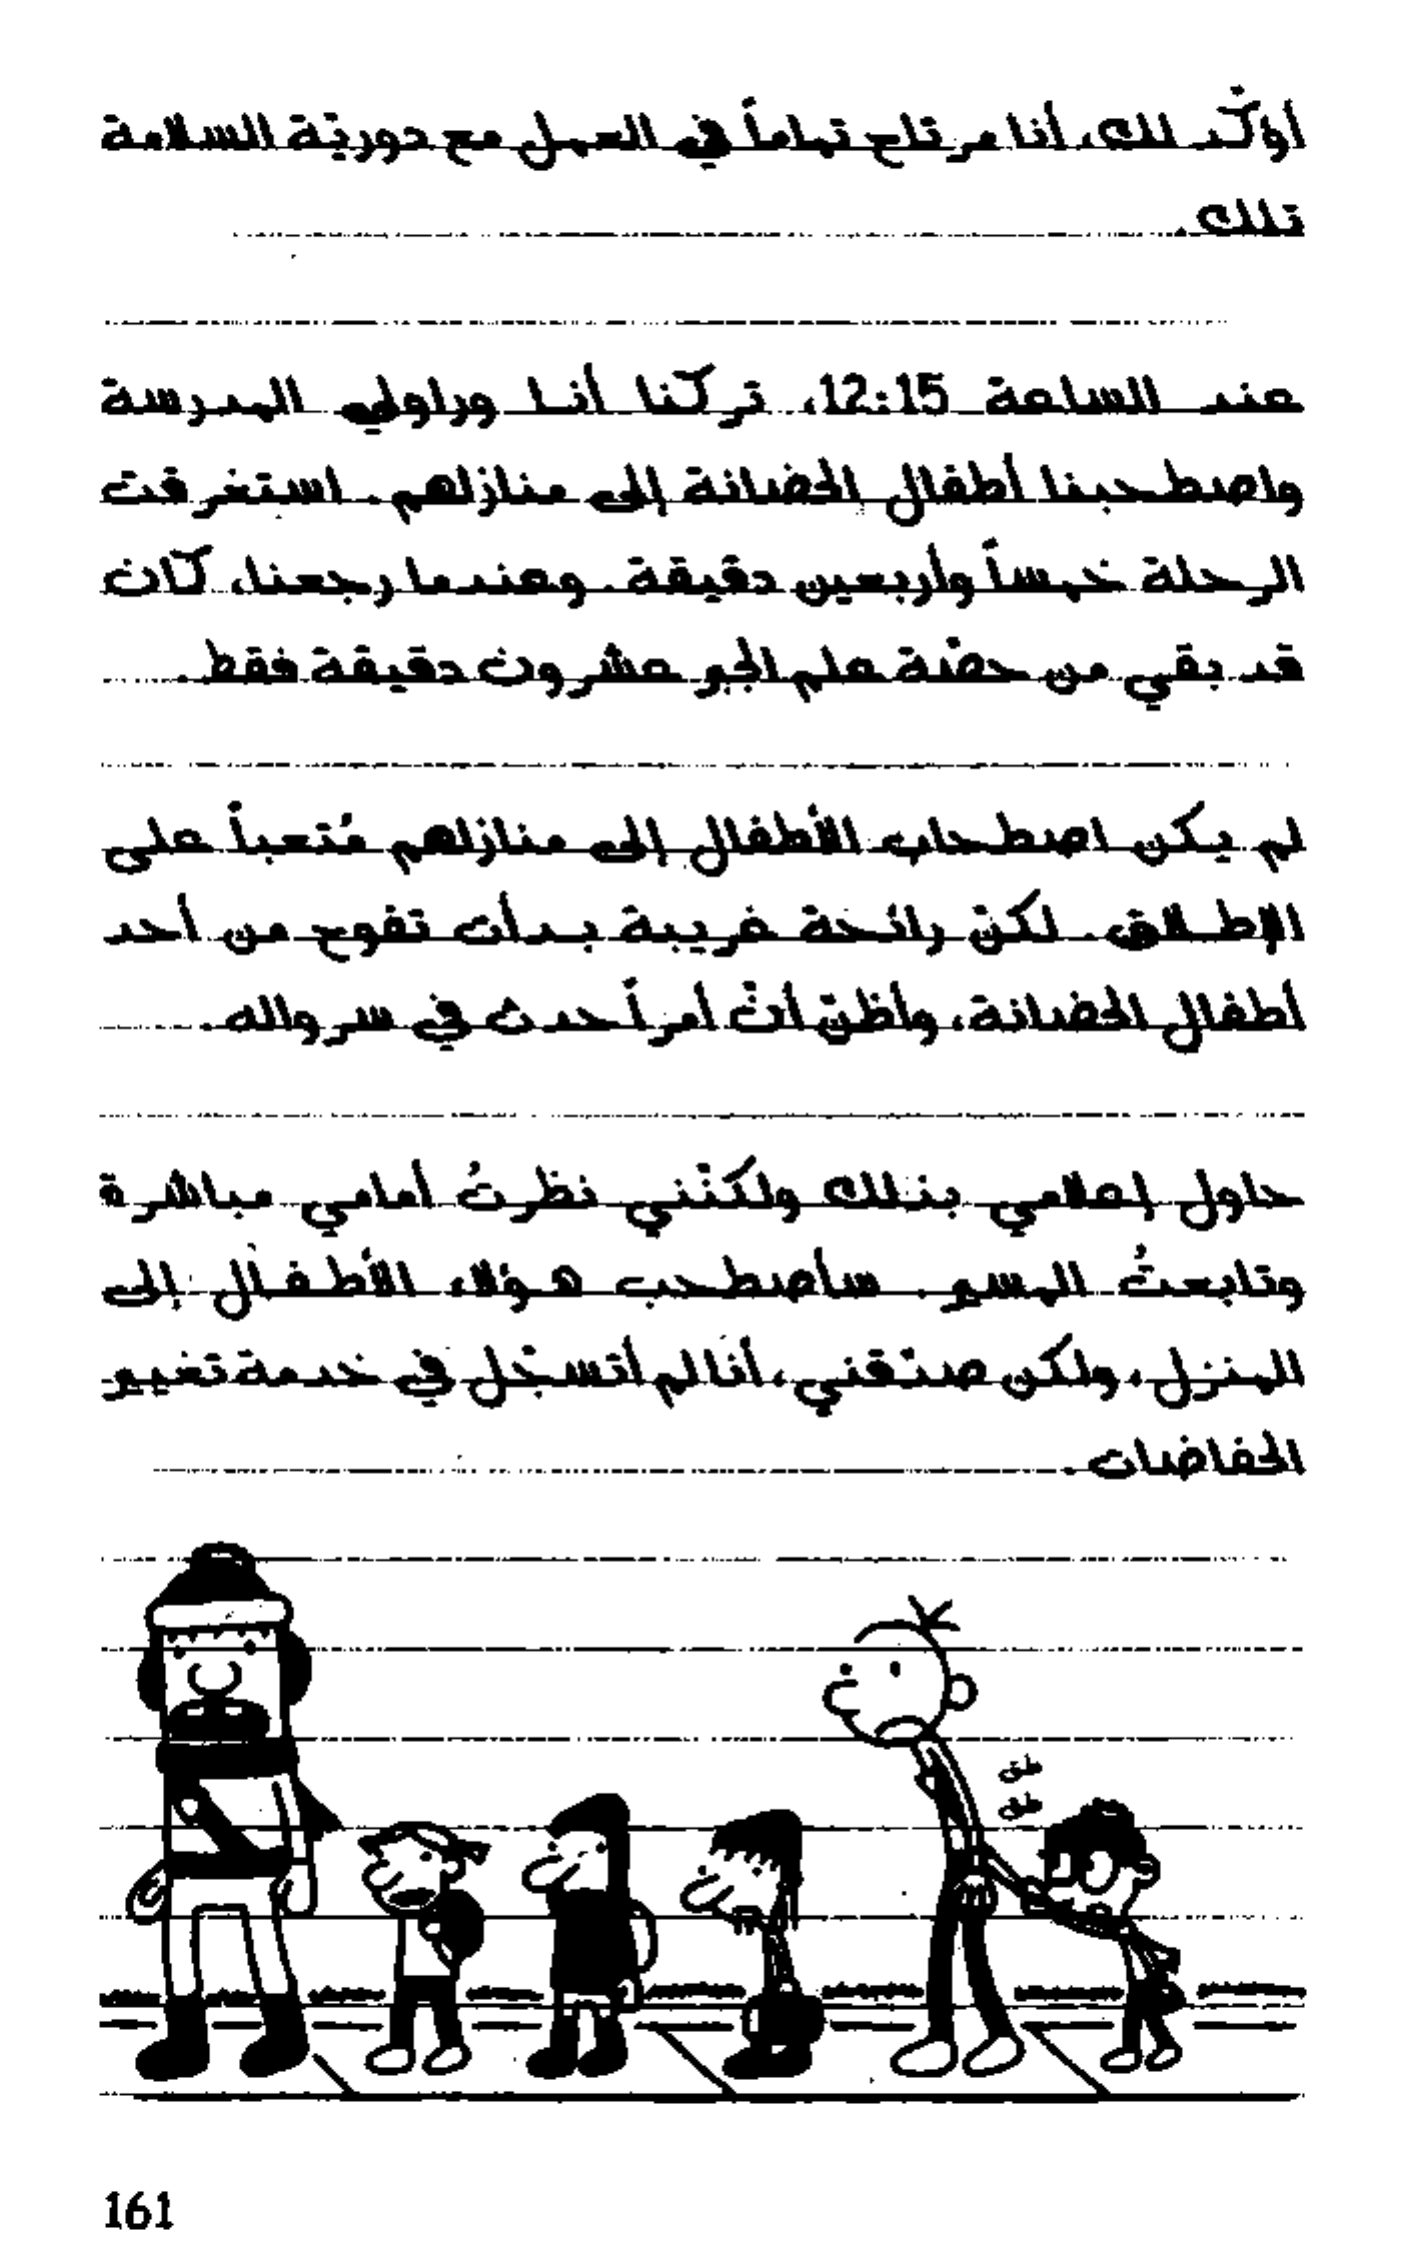 أؤكّد لك، أنا مرتاح تماماً في العمل مع دوريّة السلامة
تلك.
عند الساعة 12:15، تركنا أنا وراولي المدرسة
واصطحبنا أطفال الحضانة إلى منازلهم. استغرقت
الرحلة خمساً وأربعين دقيقة. وعندما رجعنا، كان
قد بقي من حصّة علم الجبر عشرون دقيقة فقط.
لم يكن اصطحاب الأطفال إلى منازلهم مُتعباً على
الإطلاق. لكنّ رائحة غريبة بدأت تفوح من أحد
أطفال الحضانة، وأظنّ أنّ أمراً حدث في سرواله.
حاول إعلامي بذلك ولكنّني نظرتُ أمامي مباشرة
وتابعتُ المسير. سأصطحب هؤلاء الأطفال إلى
المنزل، ولكن صدّقني، أنا لم أتسجّل في خدمة تغيير
الحفاضات.
طق
طق
161